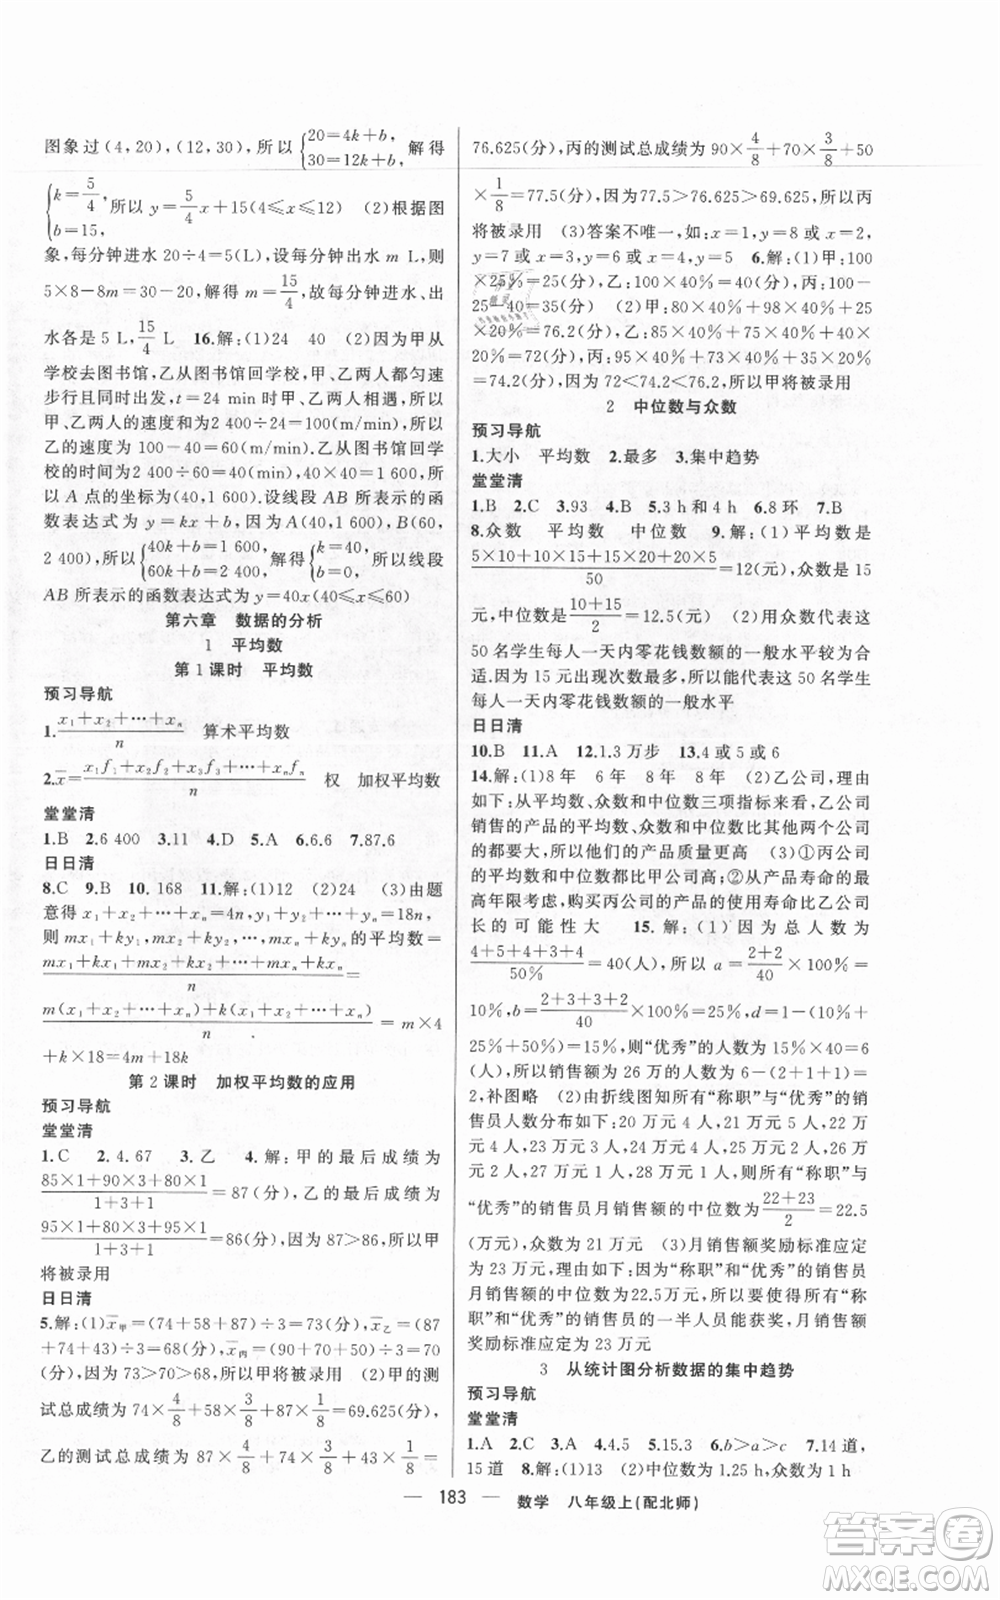 图象过(4,20),(12,30),所以{20=4k+b, 30=12k+b, 解得
{k=5/4, b=15, 所以 y=5/4x+15(4≤x≤12) (2)根据图
象,每分钟进水 20÷4=5(L),设每分钟出水 m L,则
5×8-8m=30-20,解得m=15/4,故每分钟进水、出
水各是 5 L,15/4 L 16.解:(1)24 40 (2)因为甲从
学校去图书馆,乙从图书馆回学校,甲、乙两人都匀速
步行且同时出发,t=24 min 时甲、乙两人相遇,所以
甲、乙两人的速度和为2 400÷24=100(m/min),所以
乙的速度为 100-40=60(m/min).乙从图书馆回学
校的时间为2 400÷60=40(min),40×40=1 600,所
以 A 点的坐标为(40,1 600).设线段 AB 所表示的函
数表达式为 y=kx+b,因为A(40,1 600),B(60,
2 400),所以{40k+b=1 600, 60k+b=2 400, 解得{k=40, b=0, 所以线段
AB 所表示的函数表达式为 y=40x(40≤x≤60)
第六章 数据的分析
1 平均数
第1课时 平均数
预习导航
1.(x₁+x₂+…+xₙ)/n 算术平均数
2.x̄=(x₁f₁+x₂f₂+…+xₙfₙ)/n 权 加权平均数
堂堂清
1.B 2.6 400 3.11 4.D 5.A 6.6.6 7.87.6
日日清
8.C 9.B 10.168 11.解:(1)12 (2)24 (3)由题
意得 x₁+x₂+…+xₙ=4n,y₁+y₂+…+yₙ=18n,
则 mx₁+ky₁,mx₂+ky₂,…,mxₙ+kyₙ的平均数=
(mx₁+kx₁+mx₂+kx₂+…+mxₙ+kxₙ)/n=
(m(x₁+x₂+…+xₙ)+k(x₁+x₂+…+xₙ))/n=m×4
+k×18=4m+18k
第2课时 加权平均数的应用
预习导航
堂堂清
1.C 2.4.67 3.乙 4.解:甲的最后成绩为
(85×1+90×3+80×1)/(1+3+1)=87(分),乙的最后成绩为
(95×1+80×3+95×1)/(1+3+1)=86(分),因为87>86,所以甲
将被录用
日日清
5.解:(1)x̄甲=(74+58+87)÷3=73(分),x̄乙=(87
+74+43)÷3=68(分),x̄丙=(90+70+50)÷3=
70(分).因为73>70>68,所以甲将被录用 (2)甲的测
试总成绩为 74×4/8+58×3/8+87×1/8=69.625(分),
乙的测试总成绩为 87×4/8+74×3/8+43×1/8=
76.625(分),丙的测试总成绩为90×4/8+70×3/8+50
×1/8=77.5(分),因为77.5>76.625>69.625,所以丙
将被录用 (3)答案不唯一,如:x=1,y=8或x=2,
y=7或x=3,y=6或x=4,y=5 6.解:(1)甲:100
×25%=25(人),乙:100×40%=40(人),丙:100-
25-40=35(人) (2)甲:80×40%+78×40%+65×
20%=76.2(分),乙:80×40%+64×40%+72×
20%=72(分),丙:90×40%+58×40%+75×20%
=74.2(分),因为 72<74.2<76.2,所以甲将被录用
2 中位数与众数
预习导航
1.大小 平均数 2.最多 3.集中趋势
堂堂清
1.B 2.C 3.93 4.B 5.3 h 和 4 h 6.8 环 7.B
8.众数 平均数 中位数 9.解:(1)平均数是
(5×10+10×15+15×20+20×5)/50=12(元),众数是 15
元,中位数是(10+15)/2=12.5(元) (2)用众数代表这
50 名学生每人一天内零花钱数额的一般水平较为合
适.因为 15 元出现次数最多,所以能代表这 50 名学生
每人一天内零花钱数额的一般水平
日日清
10.B 11.A 12.1.3 万步 13.4 或 5 或 6
14.解:(1)8年 6年 8年 8年 (2)乙公司,理由
如下:从平均数、众数和中位数三项指标来看,乙公司
销售的产品的平均数、众数和中位数与其他两个公司
的都要大,所以他们的产品质量更高 (3)①丙公司
的平均数和中位数都比甲公司高;②从产品寿命的最
高年限考虑,购买丙公司的产品的使用寿命比乙公司
长的可能性大 15.解:(1)因为总人数为
(4+5+4+3+4)/50%=40(人),所以 a=(2+2)/40×100%=
10%,b=(2+3+3+2)/40×100%=25%,d=1-10%-
25%-50%=15%,则“优秀”的人数为 15%×40=6
(人),所以销售额为 26 万的人数为 6-(2+1+1)=
2,补图略 (2)由折线图知所有“称职”与“优秀”的销
售员人数分布如下:20 万元 4 人,21 万元 5 人,22 万
元 4 人,23 万元 3 人,24 万元 4 人,25 万元 2 人,26 万
元 2 人,27 万元 1 人,28 万元 1 人,则所有“称职”与
“优秀”的销售员月销售额的中位数为(22+23)/2=22.5
(万元),众数为 21万元 (3)月销售额奖励标准应定
为 23 万元,因为“称职”和“优秀”的销售员
月销售额的中位数为22.5万元,所以要使得“称职”
和“优秀”的销售员的一半人员能获奖,月销售额
奖励标准应定为 23 万元
3 从统计图分析数据的集中趋势
预习导航
堂堂清
1.A 2.C 3.A 4.4.5 5.15.3 6.b>a>c 7.14 道,
15 道 8.解:(1)13 (2)中位数为1.25 h,众数为1 h
— 183 — 数学 八年级上(配北师)
答案圈
MXQE.COM